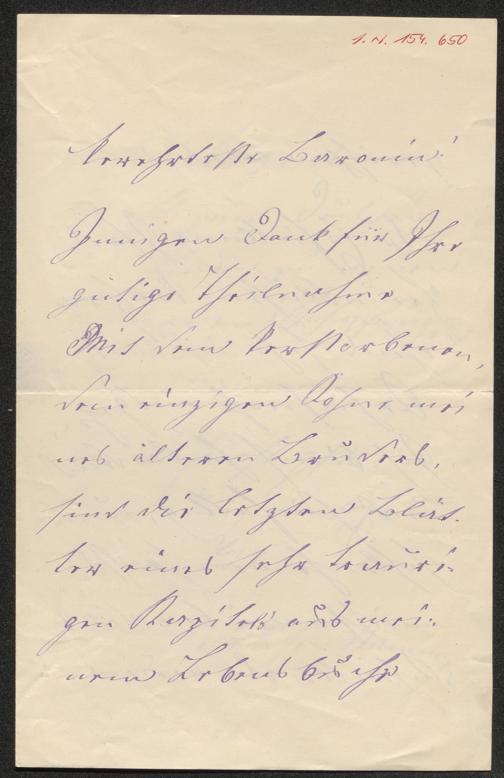 I. N. 154. 650
Verehrteste Baronin!
Innigen Dank für Ihre
gütige Theilnahme
Mit dem Verstorbenen,
dem einzigen Sohne mei
nes älteren Bruders,
sind die letzten Blät-
ter eines sehr trauri-
gen Kapitels aus mei-
nem Lebensbuche